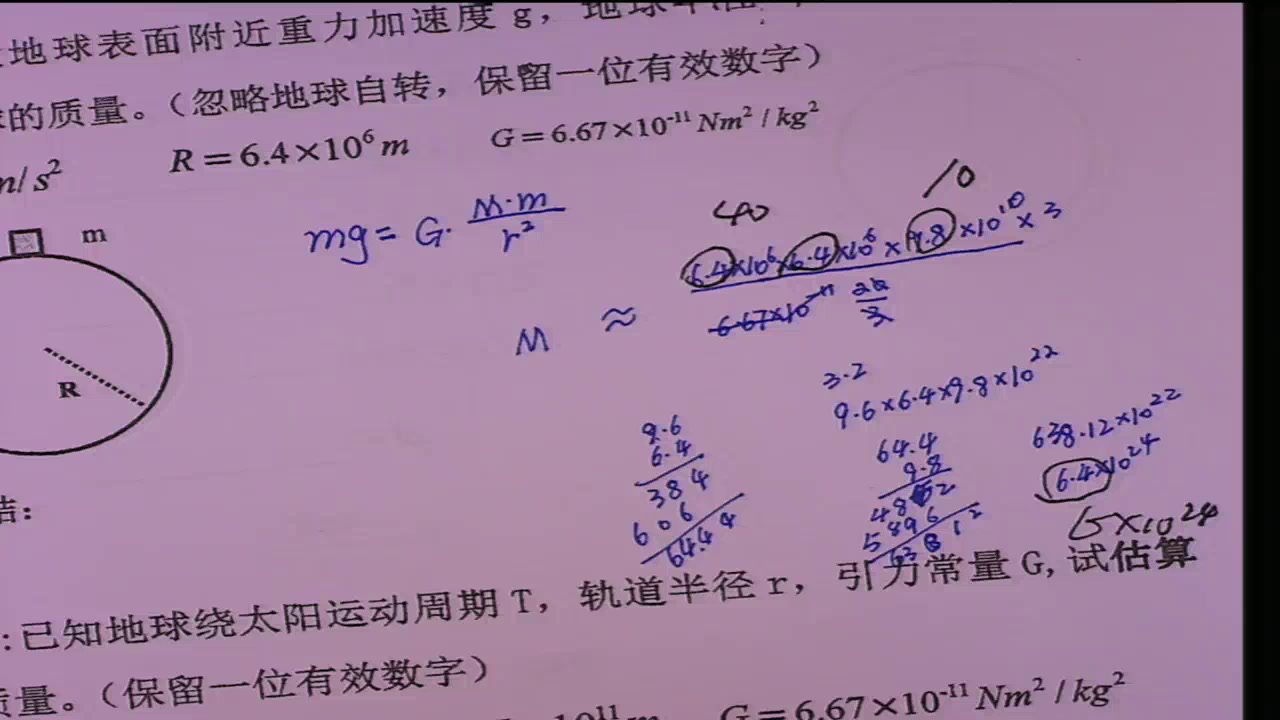 地球表面附近重力加速度 g，地球
的质量。（忽略地球自转，保留一位有效数字）
m/s² R = 6.4×10⁶ m G = 6.67×10⁻¹¹ Nm² / kg²
m
R
mg = G· M·m / r²
40 10
6.4×10⁶×6.4×10⁶×9.8×10¹⁰×3
M ≈
6.67×10⁻¹¹ 20/3
3.2
9.6×6.4×9.8×10²²
9.6
6.4
384
606
64.44
64.4
9.8
5896
638.12×10²²
6.4×10²⁴
6×10²⁴
结：
:已知地球绕太阳运动周期 T，轨道半径 r，引力常量 G, 试估算
质量。（保留一位有效数字）
10¹¹ m G = 6.67×10⁻¹¹ Nm² / kg²